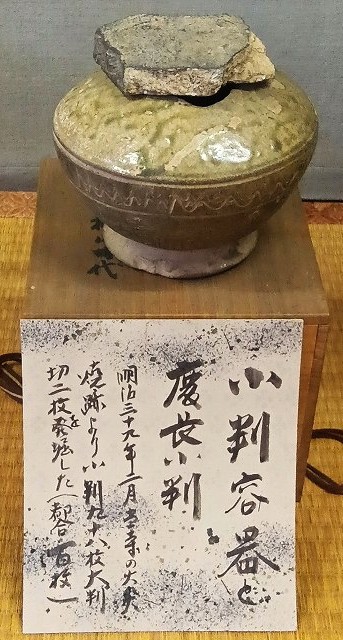 小判容器と
慶長小判
明治三十九年一月の
焼跡より小判九十八枚大判
切二枚を発掘した（都合百枚）